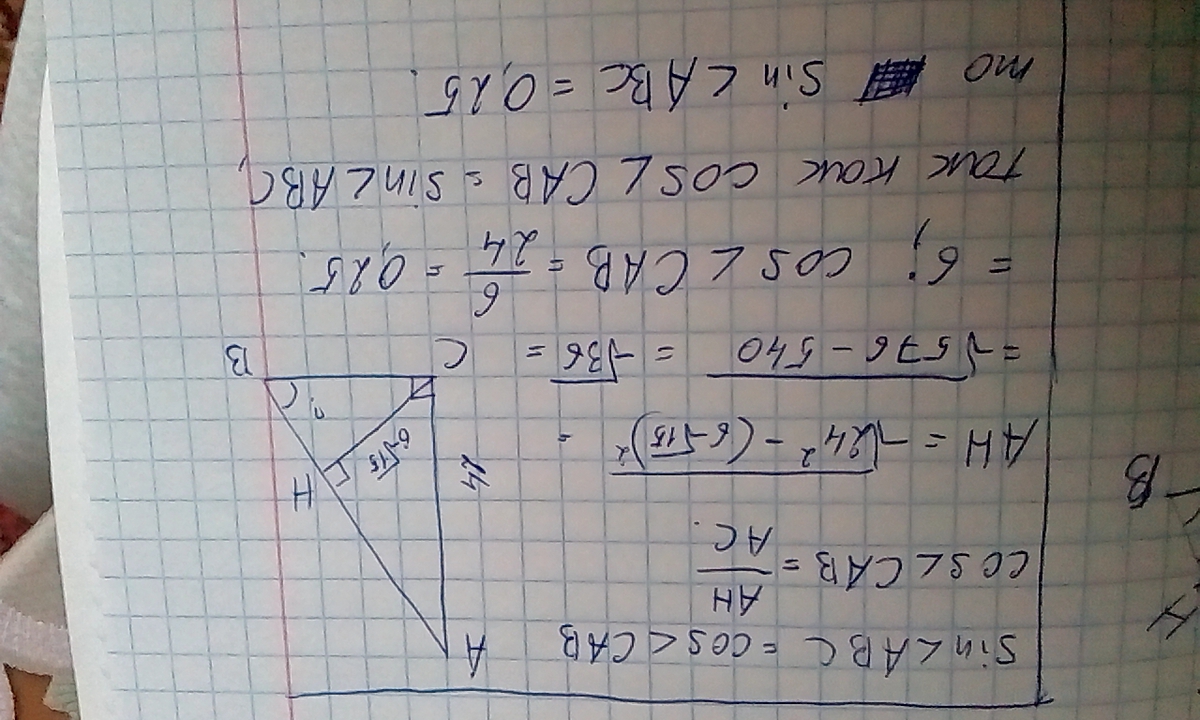 sin∠ABC = cos∠CAB
cos∠CAB = AH/AC.
AH = √(24² - (6√15)²) =
= √(576 - 540) = √36 =
= 6; cos∠CAB = 6/24 = 0,25.
так как cos∠CAB = sin∠ABC,
то sin∠ABC = 0,25.
A
H
6√15
24
?
C
B
B
H